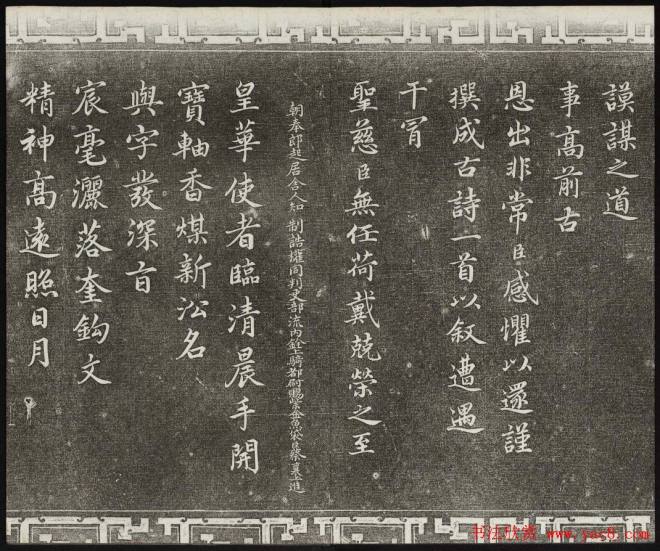 謨謀之道
事高前古
恩出非常臣感懼以還謹
撰成古詩一首以叙遭遇
干冒
聖慈臣無任荷戴兢榮之至
朝奉郎起居舍人知制誥權同判吏部流內銓上騎都尉賜紫金魚袋臣蔡襄上進
皇華使者臨清晨手開
寶軸香煤新沿名
與字發深旨
宸毫灑落奎鈎文
精神高遠照日月
书法欣赏 www.yac8.com